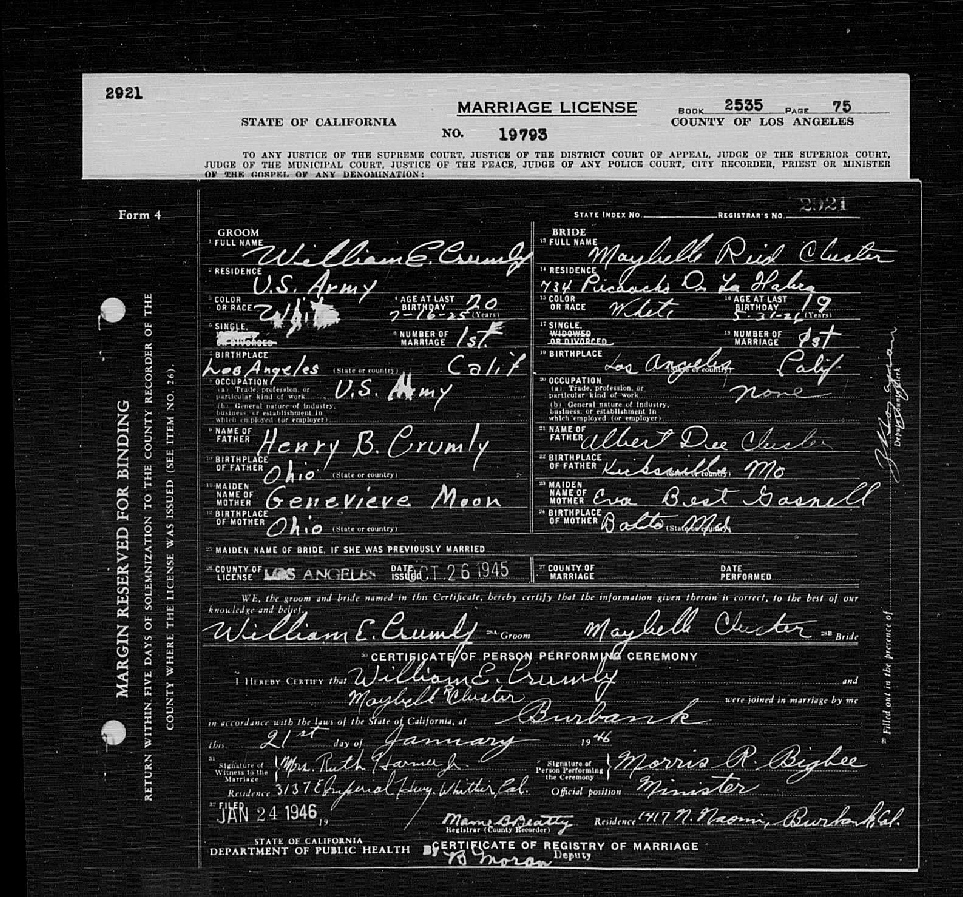 2921
MARRIAGE LICENSE
BOOK 2535 PAGE 75
STATE OF CALIFORNIA
COUNTY OF LOS ANGELES
NO. 19793
TO ANY JUSTICE OF THE SUPREME COURT, JUSTICE OF THE DISTRICT COURT OF APPEAL, JUDGE OF THE SUPERIOR COURT,
JUDGE OF THE MUNICIPAL COURT, JUSTICE OF THE PEACE, JUDGE OF ANY POLICE COURT, CITY RECORDER, PRIEST OR MINISTER
OF THE GOSPEL OF ANY DENOMINATION:
Form 4
STATE INDEX NO. REGISTRAR'S NO. 2921
GROOM
1 FULL NAME William E. Crumly
2 RESIDENCE U.S. Army
3 COLOR OR RACE White
4 AGE AT LAST BIRTHDAY 20 (Years)
7-16-25
5 SINGLE, OR DIVORCED
6 NUMBER OF MARRIAGE 1st
7 BIRTHPLACE Los Angeles (State or country) Calif
8 OCCUPATION U.S. Army
(a) Trade, profession, or particular kind of work
(b) General nature of industry, business, or establishment in which employed (or employer)
9 NAME OF FATHER Henry B. Crumly
10 BIRTHPLACE OF FATHER Ohio (State or country)
11 MAIDEN NAME OF MOTHER Genevieve Moon
12 BIRTHPLACE OF MOTHER Ohio (State or country)
BRIDE
13 FULL NAME Maybelle Reid Cluster
14 RESIDENCE 734 De La Habra
15 COLOR OR RACE White
16 AGE AT LAST BIRTHDAY 19 (Years)
17 SINGLE, WIDOWED OR DIVORCED
18 NUMBER OF MARRIAGE 1st
19 BIRTHPLACE Los Angeles Calif
20 OCCUPATION none
(a) Trade, profession, or particular kind of work
(b) General nature of industry, business, or establishment in which employed (or employer)
21 NAME OF FATHER Albert Dee Cluster
22 BIRTHPLACE OF FATHER Kirksville, Mo
23 MAIDEN NAME OF MOTHER Eva Best Gosnell
24 BIRTHPLACE OF MOTHER Balto Md
25 MAIDEN NAME OF BRIDE, IF SHE WAS PREVIOUSLY MARRIED
26 COUNTY OF LICENSE LOS ANGELES DATE ISSUED OCT 26 1945
27 COUNTY OF MARRIAGE DATE PERFORMED
WE, the groom and bride named in this Certificate, hereby certify that the information given therein is correct, to the best of our
knowledge and belief.
William E. Crumly Groom Maybelle Cluster Bride
CERTIFICATE OF PERSON PERFORMING CEREMONY
I HEREBY CERTIFY that William E. Crumly and
Maybell R Cluster were joined in marriage by me
in accordance with the laws of the State of California, at Burbank
this 21st day of January 1946
Signature of Witness to the Marriage Mrs. Ruth Jr.
Signature of Person Performing the Ceremony Morris R. Bigbee
Residence 3137 E Imperial Hwy. Whittier, Cal. Official position Minister
FILED
JAN 24 1946 19
Mame B Beatty Residence 1417 N. Naomi, Burbank, Cal.
Registrar (County Recorder)
STATE OF CALIFORNIA
DEPARTMENT OF PUBLIC HEALTH
CERTIFICATE OF REGISTRY OF MARRIAGE
BY B Moran Deputy
MARGIN RESERVED FOR BINDING
RETURN WITHIN FIVE DAYS OF SOLEMNIZATION TO THE COUNTY RECORDER OF THE
COUNTY WHERE THE LICENSE WAS ISSUED (SEE ITEM NO. 26).
Filled out in the presence of